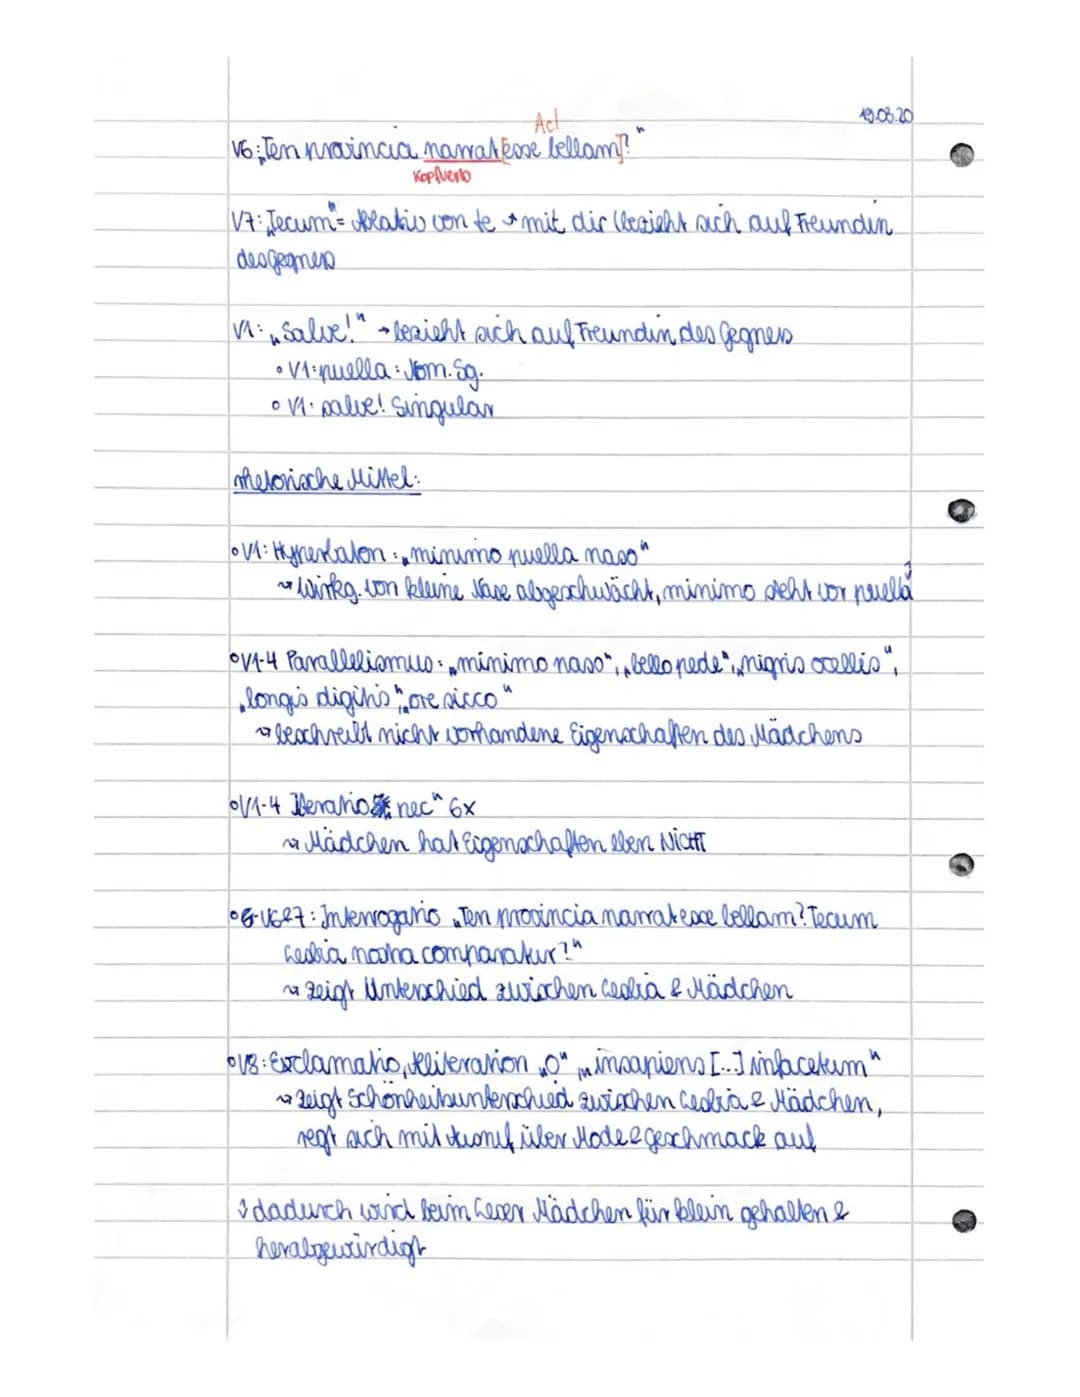 19.08.20
AcI
V6: „Ten provincia narrat [esse bellam]?"
Kopfverb
V7: „Tecum" = Ablativ von te → mit dir (bezieht sich auf Freundin
des Gegners
V1: „Salve!" → bezieht sich auf Freundin des Gegners
• V1: puella: Nom. Sg.
• V1: salve! Singular
rhetorische Mittel:
• V1: Hyperbaton: „minimo puella naso"
↝ Wirkg. von kleine Nase abgeschwächt, minimo steht vor puella
• V1-4 Parallelismus: „minimo naso", „bello pede", „nigris ocellis",
„longis digitis", „ore sicco"
↝ beschreibt nicht vorhandene Eigenschaften des Mädchens
• V1-4 Iteratio „nec" 6x
↝ Mädchen hat Eigenschaften eben NICHT
• V6&7: Interrogatio „Ten provincia narrat esse bellam? Tecum
Lesbia nostra comparatur?"
↝ zeigt Unterschied zwischen Lesbia & Mädchen
• V8: Exclamatio, Alliteration „O", „insapiens [...] infacetum"
↝ zeigt Schönheitsunterschied zwischen Lesbia & Mädchen,
regt sich mit Ausruf über Mode & Geschmack auf
dadurch wird beim Leser Mädchen für klein gehalten &
herabgewürdigt